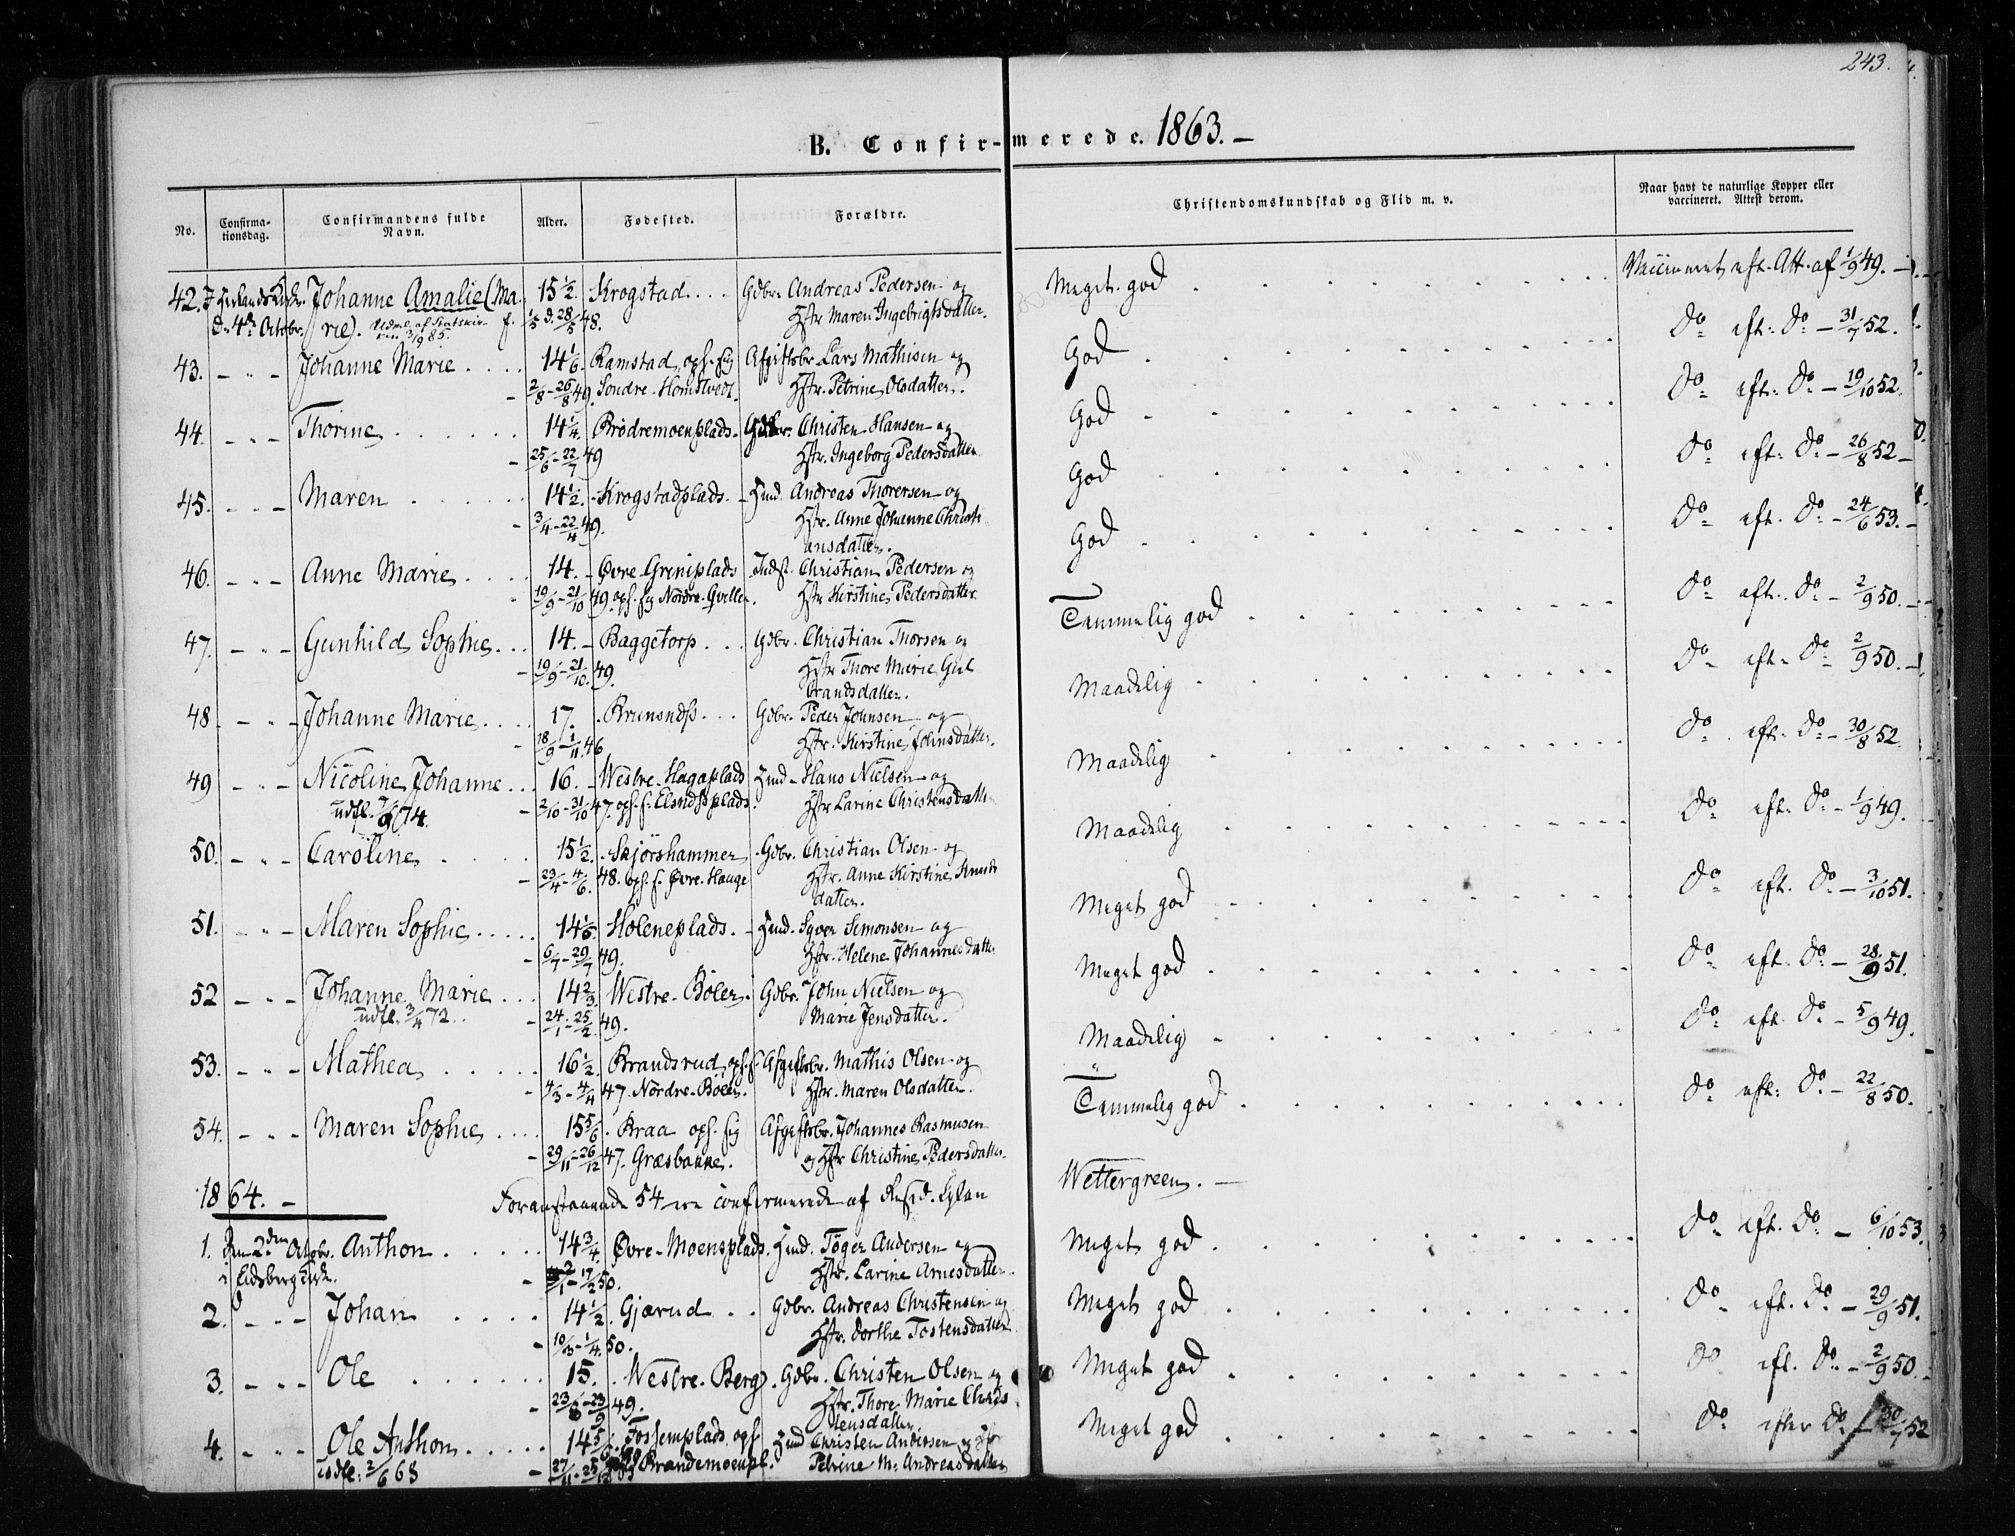 243.
B. Confir-merede. 1863. —
No.
Confirma-tionsdag.
Confirmandens fulde Navn.
Alder.
Fødested.
Forældre.
Christendomskundskab og Flid m. v.
Naar havt de naturlige Kopper eller vaccineret. Attest derom.
42. Johanne Amalie (Ma- 15 1/2. Krogstad . . . Gdbr. Andreas Pedersen og Meget god Att. af 1/9 49. —
d. 4de Octobr. rie). f. 1/5 d. 28/5 48. Hstr Maren Ingebrigtsdatter.
43. — " — Johanne Marie . . . . 14 1/6. Ramstad, oph. sig Afgiftsbr. Lars Mathisen og God Do eft: Do — 31/7 52.
2/8 — 26/8 49. Søndre-Homstvedt. Hstr. Petrine Olsdatter.
44. — " — Thorine . . . . 14 1/4. Brødremoenplads. Christen Hansen og God Do eft: Do — 19/10 52.
25/6 — 22/7 49 Hstr. Ingeborg Pedersdatter
45. — " — Maren . . . . 14 1/2. Krogstadplads. — Hmd. Andreas Thorersen og God Do eft: Do — 26/8 52 —
3/4 — 22/4 49. Hstr. Anne Johanne Christi-
ansdatter.
46. — " — Anne Marie . . . . 14. — Øvre-Griniplads Indst. Christian Pedersen og God Do eft. Do — 24/6 53. —
19/9 — 21/10 49. oph. sig Nordre-Gviller. Hstr Kirstine Pedersdatter.
47. — " — Gunhild Sophie . . . 14. — Baggetorp . . . Gdbr. Christian Thorsen og Temmelig god Do eft. Do — 2/9 50. —
19/9 — 21/10. 49. Hstr Thore Marie Gul-
brandsdatter.
48 — " — Johanne Marie . . . . 17. Brunsnæs . . . Gdbr. Peder Johnsen og Maadelig Do eft. Do 2/9 50. —
18/9 — 1/11. 46 Hstr. Kirstine Johnsdatter.
49 — " — Nicoline Johanne . . . 16. — Westre-Hagaplads Hmd — Hans Nielsen og Maadelig Do eft. Do — 30/8 52.
udfl. 7/9 74. 2/10 — 31/10 47. oph. s. Elsnæsplads. Hstr Larine Christensdatter
50. — " — Caroline . . . . 15 1/2. Skjørshammer Gdbr. Christian Olsen og Maadelig Do eft. Do — 1/9 49.
23/4 — 4/6. 48. oph. s. Øvre-Hauge Hstr. Anne Kirstine Knuds-
datter.
51. — " — Maren Sophie . . . . 14 1/6. Holeneplads. — Hmd. Syver Simonsen og Meget god Do eft. Do — 3/10 51.
6/7 — 29/7 49. Hstr. Helene Johannesdatter
52 — " — Johanne Marie . . . 14 2/3. Westre-Bøler. Gdbr. John Nielsen og Meget god Do eft. Do — 28/9 51.
udfl. 3/4 72. 24/1 — 25/2. 49. Marie Jensdatter.
53. — " — Mathea . . . . 16 1/2. Brandsrud, oph. s. Afgiftsbr. Mathis Olsen og Maadelig Do eft. Do — 5/9 49.
4/3 — 4/4 47. Nordre-Bøler. Hstr. Maren Olsdatter.
54. — " — Maren Sophie . . . . 15 5/6. Braa oph. sig Afgiftsbr. Johannes Rasmusen Temmelig god Do eft: Do — 22/8 50.
29/11 — 26/12 47. Græsbakke. og Hstr Christine Pedersdatter.
1864. — Foranstaaende 54 ere confirmerede af Resid. Capellan Wettergreen. —
1. Den 2den Octobr. Anthon . . . . 14 3/4. Øvre-Moensplads. Hmd. Tøger Andersen og Meget god Do eft. Do — 6/10 53.
i Eidsberg Kirke. 17/2 50. Hstr. Larine Arnesdatter.
2. — " — Johan . . . . 14 1/2. Gjærud . . Gdbr. Andreas Christensen og Meget god Do eft. Do — 29/9 51.
10/3 — 1/4. 50. Hstr. Dorthe Tostensdatter
3. — " — Ole . . . . 15. Westre-Berg. Gdbr. Christen Olsen og Meget god Do eft. Do — 2/9 50.
23/8 — 23/9 49. Hstr. Thore Marie Chris-
tensdatter
4. — " — Ole Anthon . . . . 14 5/6. Fossemplads, oph Hmd Christen Andersen og Meget god Do efter Do — 30/7 52
udfl: 2/6 68 27/11 — 25/12 Brandemoenpl. Petrine M: Andreasdatter